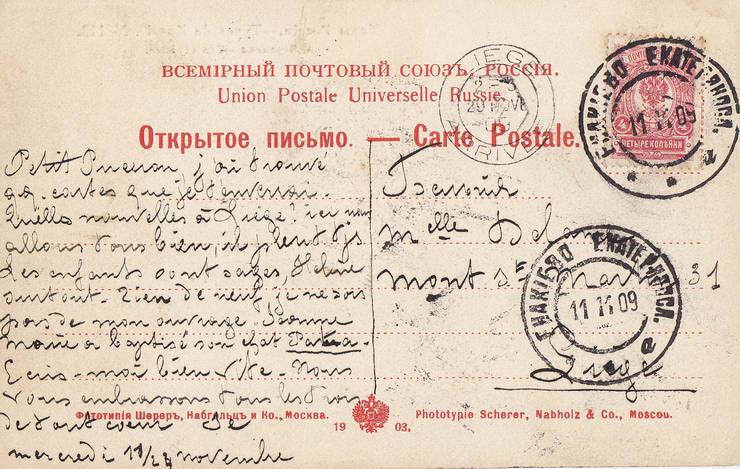 ВСЕМІРНЫЙ ПОЧТОВЫЙ СОЮЗЪ. РОССІЯ.
Union Postale Universelle Russie.
Открытое письмо. — Carte Postale.
LIEGE
ARRIVEE
ЧЕТЫРЕ КОПѢЙКИ
ЕНАКІЕВО ЕКАТЕРИНОСЛ.
11 11 09
Petit j'ai trouvé
qq. cartes que je t'enverrai.
Quelles nouvelles à Liège? ici nous
allons tous bien, il pleut tjs
Les enfants sont sages, Hélène
surtout. Rien de neuf, je ne sors
pas de mon ouvrage. Jeanne
a baptisé son chat
Ecris-moi bien vite. Nous
vous embrassons tous les trois
de tout coeur
mercredi 11/24 novembre
Melle
mont St Martin 31
Liège
ЕНАКІЕВО ЕКАТЕРИНОСЛ.
11 11 09
Фототипія Шереръ, Набгольцъ и Ко., Москва.
1903.
Phototypie Scherer, Nabholz & Co., Moscou.